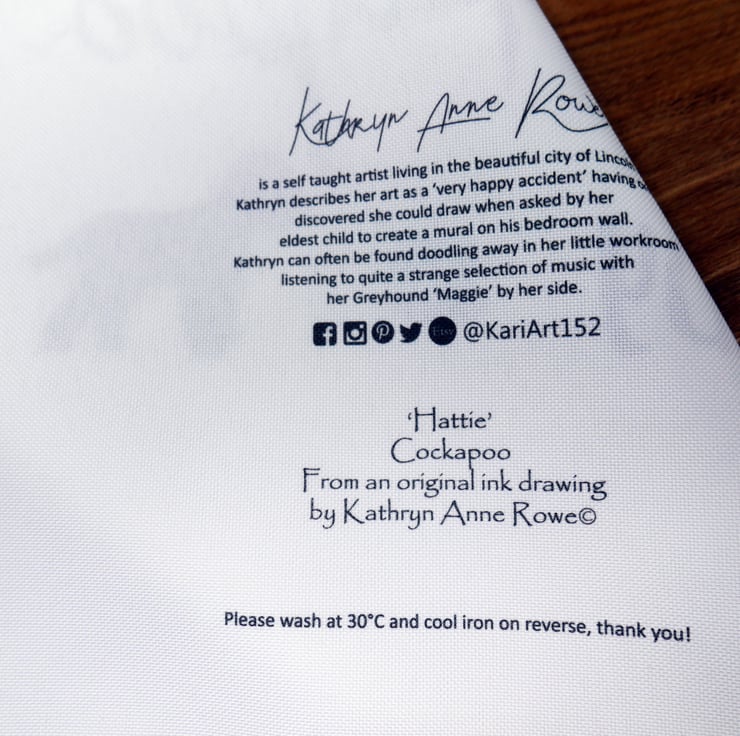 Kathryn Anne Rowe
is a self taught artist living in the beautiful city of Lincoln
Kathryn describes her art as a 'very happy accident' having
discovered she could draw when asked by her
eldest child to create a mural on his bedroom wall.
Kathryn can often be found doodling away in her little workroom
listening to quite a strange selection of music with
her Greyhound 'Maggie' by her side.
Etsy @KariArt152
'Hattie'
Cockapoo
From an original ink drawing
by Kathryn Anne Rowe©
Please wash at 30°C and cool iron on reverse, thank you!